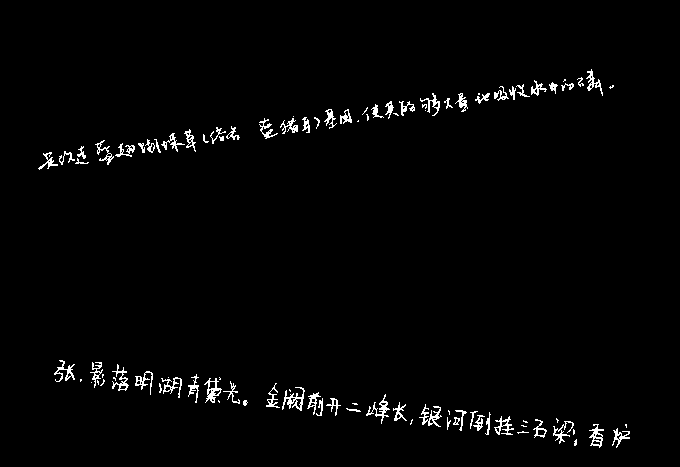 是改造蓝翅蝴蝶草(俗名 蓝猪耳)基因,使其能够大量地吸收水中的磷。
张,影落明湖青黛光。金阙前开二峰长,银河倒挂三石梁。香炉